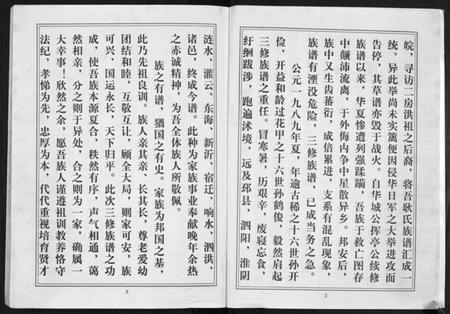 皖,寻访二房洪祖之后裔,将吾吴氏族谱汇成一
统。异此举尚未实箴便因侵华日军之大举进攻而
告停,其草谱亦毁于战火。自华城公挥亭公续修
族谱以来,华夏惨遭列强蹂躏,吾族于救亡图存
中颠沛流离,于外侮内争中星散异乡。邦安后,
族中又生齿蕃衍,成倍累进,支系有混乱现象,
族谱有湮没危险,三修族谱,已成当务之急。
公元一九八九年夏,年逾古稀之十六世孙开
俭、开益和龄过花甲之十六世孙鹤俊,毅然肩起
三修族谱之重任。冒寒暑,历艰辛,废寝忘食,
纡绷跋涉,跑遍沭境,远及邳县,泗阳,淮阴
2
涟水,灌云,东海,新沂,宿迁、响水,泗洪、
诸邑,终成今谱。此种为家族事业奉献晚年余热
之赤诚精神,为吾全体族人所敬佩。
族之有谱,猶国之有史。家族为邦国之基,
此乃先祖良训。族人亲其亲、长其长,尊老爱幼
团结和睦,互敬互让,顾全大局,则家可安,族
可兴,国运永长,天下归平。此次三修族谱之功
成,使吾族本源夏合,秩然有序,声气相通,蔼
然相亲,分之则于异处,合之则为一家,确属一
大幸事!欣然之余,愿吾族人谨遵祖训教养恪守
法纪,孝悌为先,忠厚为本,代代重视培育贤才
3